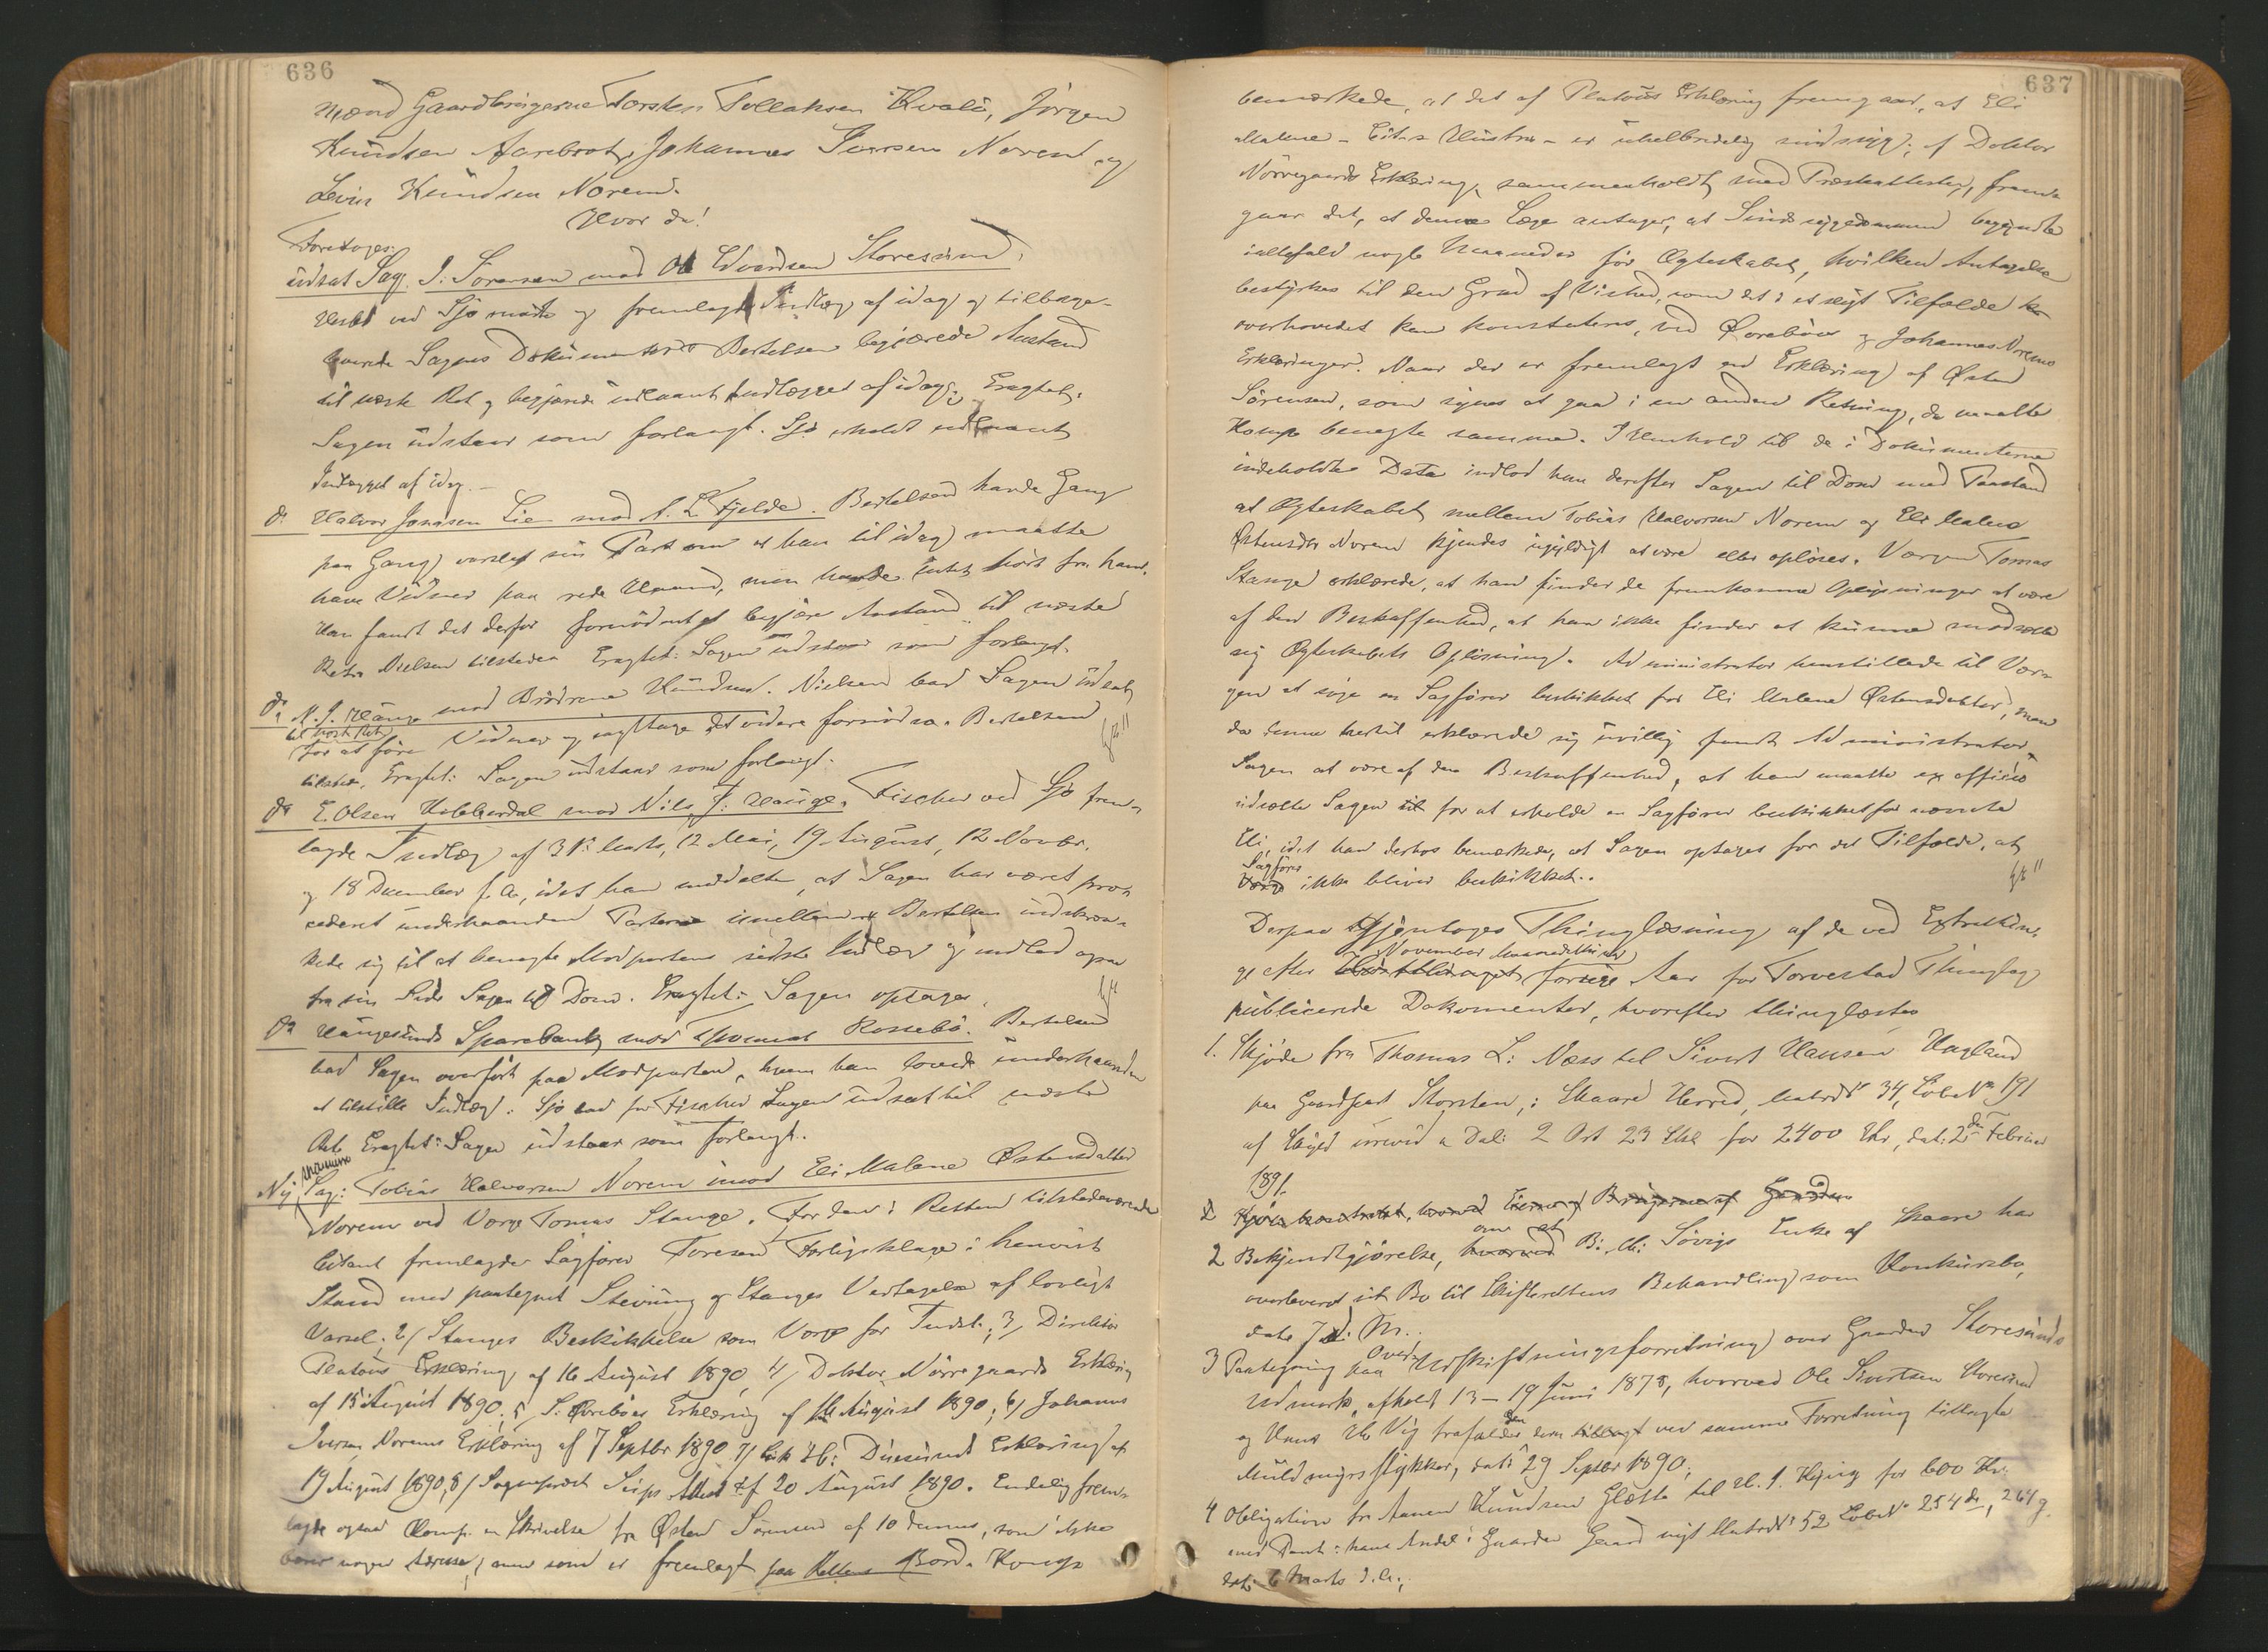 636
mænd Gaardbrugerne Torsten Tollaksen Kvalø, Jörgen
Knudsen Aarebrot, Johannes Iversen Norem og
Levin Knudsen Norem.
Hvor da!
Foretoges:
udsat Sag. J. Sørensen mod Ole Edvardsen Storesund,
ved Sjø mødte og fremlagde Indlæg af idag og tilbage-
leverede Sagens Dokumenter. Bertelsen begjærede Anstand
til næste Ret og begjærede udlaant Indlægget af idag. Eragtet:
Sagen udstaar som forlangt. Sjø erholdt udlaant
Indlægget af idag. —
do Halvor Jonasen Lie mod A. L. Fjelde. Bertelsen havde Gang
paa Gang varslet sin Part om at han til idag maatte
have Vidner paa rede Haand, men havde intet hört fra ham.
Han fandt det derfor fornödent at begjære Anstand til næste
Ret. Nielsen tilstede. Eragtet: Sagen udstaar som forlangt.
do M. J. Hauge mod Brödrene Knudsen. Nielsen bad Sagen udsat
til næste Ret
for at före Vidner og iagttage det videre fornödne. Bertelsen
tilstede. Eragtet: Sagen udstaar som forlangt.
do E. Olsen mod Nils J. Hauge. Fischer ved Sjø frem-
lagde Indlæg af 3die Marts, 12 Mai, 19 August, 12 Novbr.
og 18 December f. A., idet han meddelte, at Sagen har været pro-
cederet underhaanden Parterne imellem. Bertelsen indskræn-
kede sig til at benegte Modpartens sidste Indlæg og indlod ogsaa
fra sin Side Sagen til Dom. Eragtet: Sagen optages.
do Haugesunds Sparebank mod Thomas Rossebø. Bertelsen
bad Sagen overfört paa Modparten, hvem han lovede underhaanden
at tilstille Indlæg. Sjø bad for Fischer Sagen udsat til næste
Ret. Eragtet: Sagen udstaar som forlangt.
Ny Sag: Tobias Halvorsen Norem imod Eli Malene Østensdatter
Norem ved Værge Tomas Stange. For den i Retten tilstedeværende
Citant fremlagde Sagfører Toresen Forligsklage i henvist
Stand med paategnet Stevning og Stanges Vedtagelse af lovligt
Varsel; 2/ Stanges Beskikkelse som Værge for Indst.; 3/ Direktör
Platous Erklæring af 16 August 1890, 4/ Doktor Nörregaards Erklæring
af 15 August 1890; 5/ S. Ørebøes Erklæring af 16 August 1890; 6/ Johannes
Iversen Norems Erklæring af 7 Septbr 1890 7/ Duesunds Erklæring af
19 August 1890, 8/ Sogneprest Seips Attest af 20 August 1890. Endelig frem-
lagde ogsaa Komp. en Skrivelse fra Østen Sörensen af 10 dennes, som ikke
bærer nogen Adresse, men som er fremlagt paa Rettens Bord. Komp.
637
bemærkede, at det af Platous Erklæring fremgaar, at Eli
Malene - Cit.s Hustru - er uhelbredelig sindssyg; af Doktor
Nörregaards Erklæring, sammenholdt med Præsteattesten, frem-
gaar det, at denne Læge antager, at Sindssygdommen begyndte
ialfald nogle Maaneder för Ægteskabet, hvilken Antagelse
bestyrkes til den Grad af Vished, som det i et sligt Tilfælde
overhovedet kan konstateres, ved Ørebøes og Johannes Norems
Erklæringer. Naar der er fremlagt en Erklæring af Østen
Sörensen, som synes at gaa i en anden Retning, da maatte
Komp. benegte samme. I Henhold til de i Dokumenterne
indeholdte Data indlod han derefter Sagen til Dom med Paastand
at Ægteskabet mellem Tobias Halvorsen Norem og Eli Malene
Østensdtr Norem kjendes ugyldigt at være eller oplöses. Værgen Tomas
Stange erklærede, at han finder de fremkomne Oplysninger at være
af den Beskaffenhed, at han ikke finder at kunne modsætte
sig Ægteskabets Oplösning. Administrator henstillede til Vær-
gen at söge en Sagförer beskikket for Eli Malene Østensdatter, men
da denne hertil erklærede sig uvillig fandt Administrator
Sagen at være af den Beskaffenhed, at han maatte ex officio
udsætte Sagen for at erholde en Sagförer beskikket for nævnte
Eli, idet han derhos bemærkede, at Sagen optages for det Tilfælde, at
Sagfører
ikke bliver beskikket.
Derpaa gjentoges Thinglæsning af de ved Extrathin-
November Maanedsthing
ge efter forrige Aar for Torvestad Thinglag
publicerede Dokumenter, hvorefter thinglæstes
1. Skjöde fra Thomas L. Næss til Sivert Hansen Hagland
paa Gaardpart Storsten, i Skaare Herred, Matr. No 34, Löbe No 191
af Skyld urevid. a Dal: 2 Ort 23 Skl for 2400 Kr, dat: 2den Februar
1891.
2 Bekjendtgjörelse, om at B. M. Sövigs Enke af Skaare har
overleveret sit Bo til Skifterettens Behandling som Konkursbo,
dat. 7 d. M.;
3 Paategning paa Overudskiftningsforretning over Gaarden Storesunds
Udmark, afholdt 13 - 19 Juni 1878, hvorved Ole Sivertsen Storesund
og Hans Vig frafalder den ved samme Forretning tillagte
Muldmyrstykker, dat. 29 Septbr 1890;
4 Obligation fra Aanen Knudsen Glette til M. J. Kying for 600 Kr.
med Pant i hans Andel i Gaarden Gaard nyt Matr No 52 Löbe No 254 d, 264 g
dat. 6 Marts d. A.;